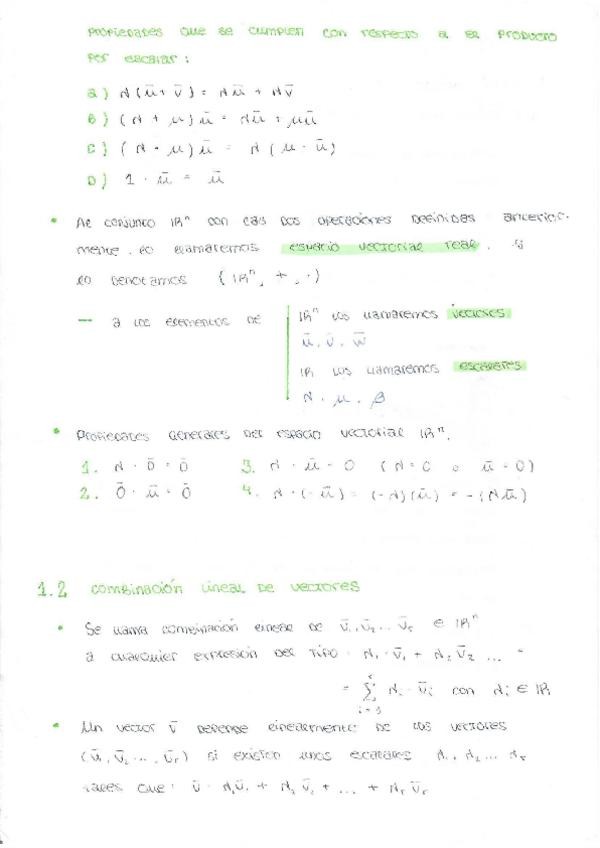 Propiedades que se cumplen con respecto a el producto
por escalar:
a) λ(ū + v̄) = λū + λv̄
b) (λ + μ)ū = λū + μū
c) (λ · μ)ū = λ(μ · ū)
d) 1 · ū = ū
• Al conjunto ℝⁿ con las dos operaciones definidas anterior-
mente, lo llamaremos espacio vectorial real, y
lo denotamos (ℝⁿ, +, ·)
— a los elementos de
ℝⁿ los llamaremos vectores
ū, v̄, w̄
ℝ los llamaremos escalares
λ, μ, β
• Propiedades generales del espacio vectorial ℝⁿ.
1. λ · 0̄ = 0̄ 3. λ · ū = 0 (λ = 0 o ū = 0)
2. 0̄ · ū = 0̄ 4. λ · (-ū) = (-λ)(ū) = -(λū)
1.2 Combinación lineal de vectores
• Se llama combinación lineal de v̄₁, v̄₂ ... v̄ᵣ ∈ ℝⁿ
a cualquier expresión del tipo λ₁ · v̄₁ + λ₂ v̄₂ ... =
= Σ λᵢ · v̄ᵢ con λᵢ ∈ ℝ
• Un vector v̄ depende linealmente de los vectores
si existen unos escalares λ₁, λ₂ ... λᵣ
tales que: v̄ = λ₁v̄₁ + λ₂ v̄₂ + ... + λᵣ v̄ᵣ